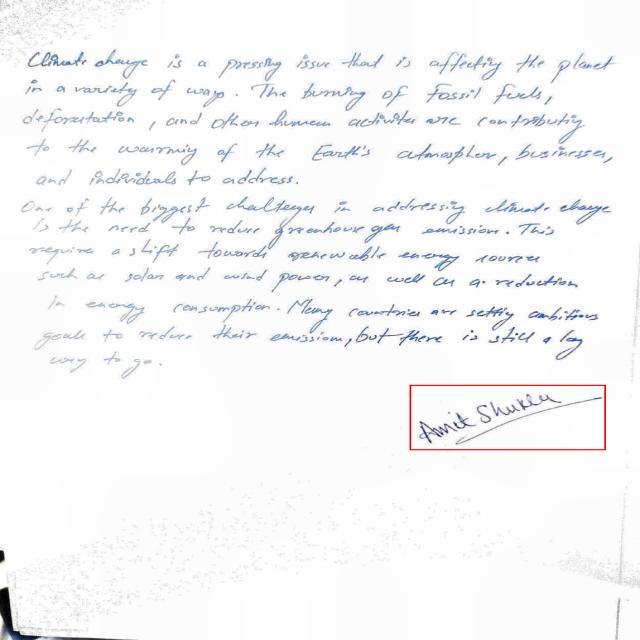 Climate change is a pressing issue that is affecting the planet
in a variety of ways. The burning of fossil fuels,
deforestation, and other human activities are contributing
to the warming of the Earth's atmosphere, businesses,
and individuals to address.
One of the biggest challenges in addressing climate change
is the need to reduce greenhouse gas emission. This
require a shift towards renewable energy sources
such as solar and wind power, as well as a reduction
in energy consumption. Many countries are setting ambitious
goals to reduce their emission, but there is still a long
way to go.
Amit Shukla